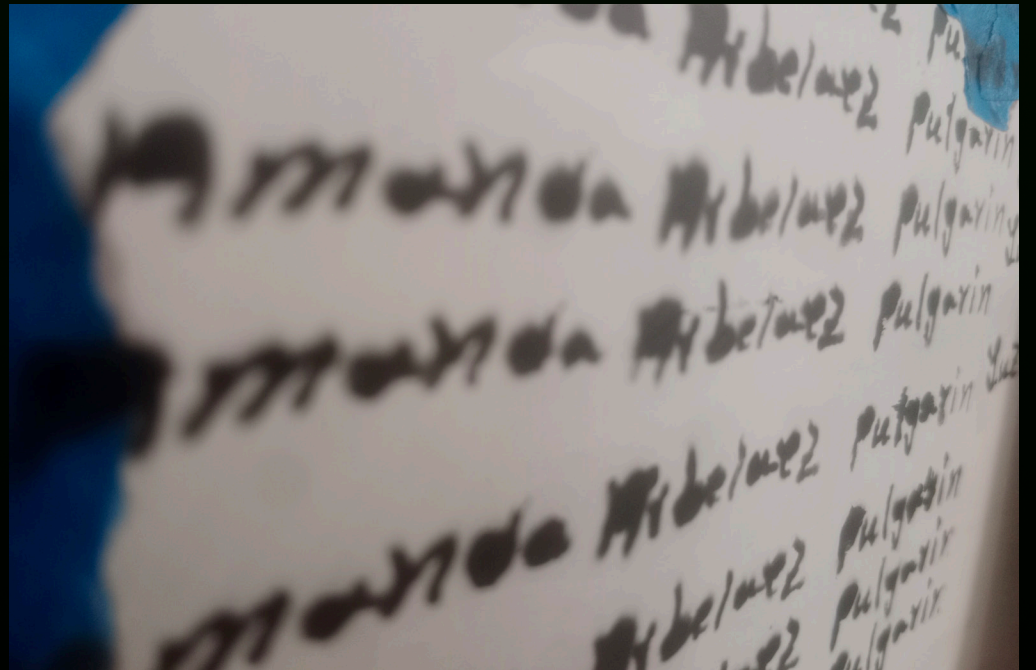 da Arbelaez Pu
Amanda Arbelaez Pulgarin
Amanda Arbelaez Pulgarin
Amanda Arbelaez Pulgarin Luz
manda Arbelaez Pulgarin
Arbelaez Pulgarin
ez Pulgarin
Pulgarin